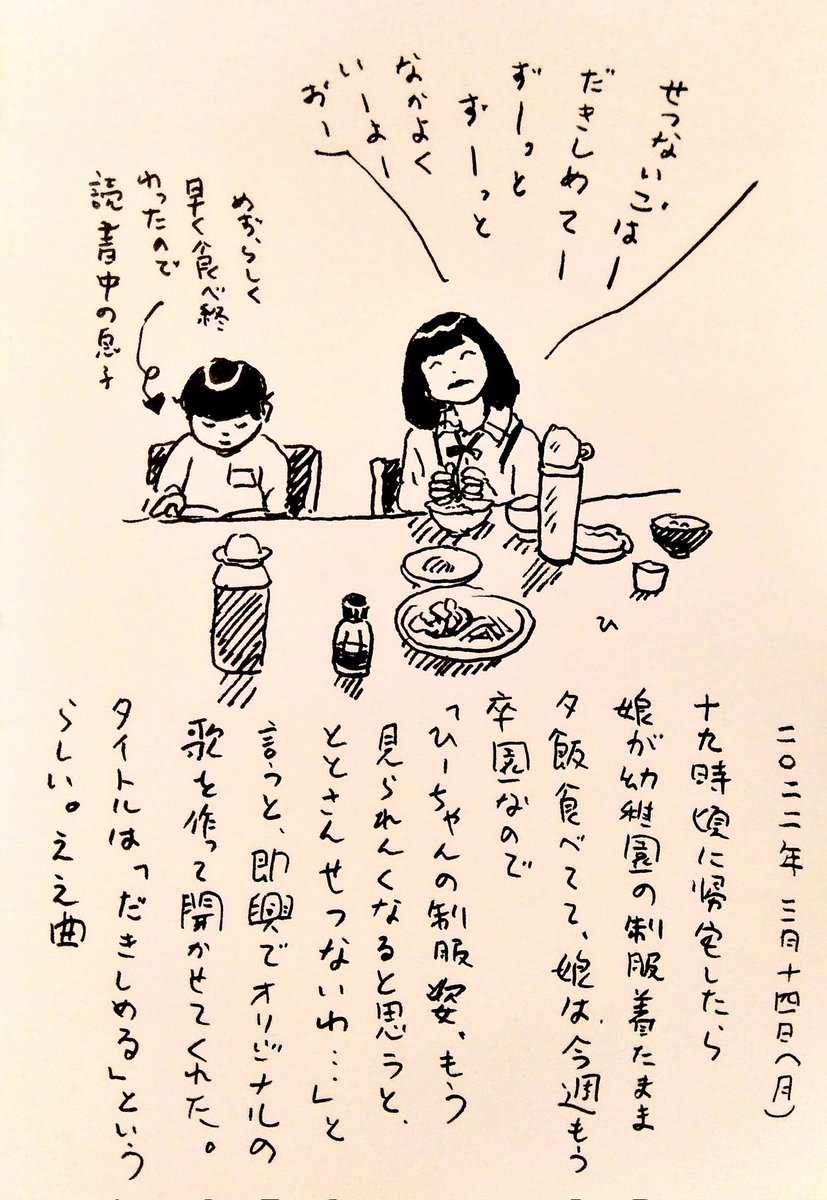 せつないごはー
だきしめてー
ずーっと
ずーっと
なかよく
いーよー
おー
めずらしく
早く食べ終
わったので
読書中の息子
ひ
二〇二二年 三月十四日(月)
十九時頃に帰宅したら
娘が幼稚園の制服着たまま
夕飯食べてて、娘は今週もう
卒園なので
「ひーちゃんの制服姿、もう
見られんくなると思うと、
ととさんせつないわ…」と
言うと、即興でオリジナルの
歌を作って聞かせてくれた。
タイトルは「だきしめる」という
らしい。ええ曲